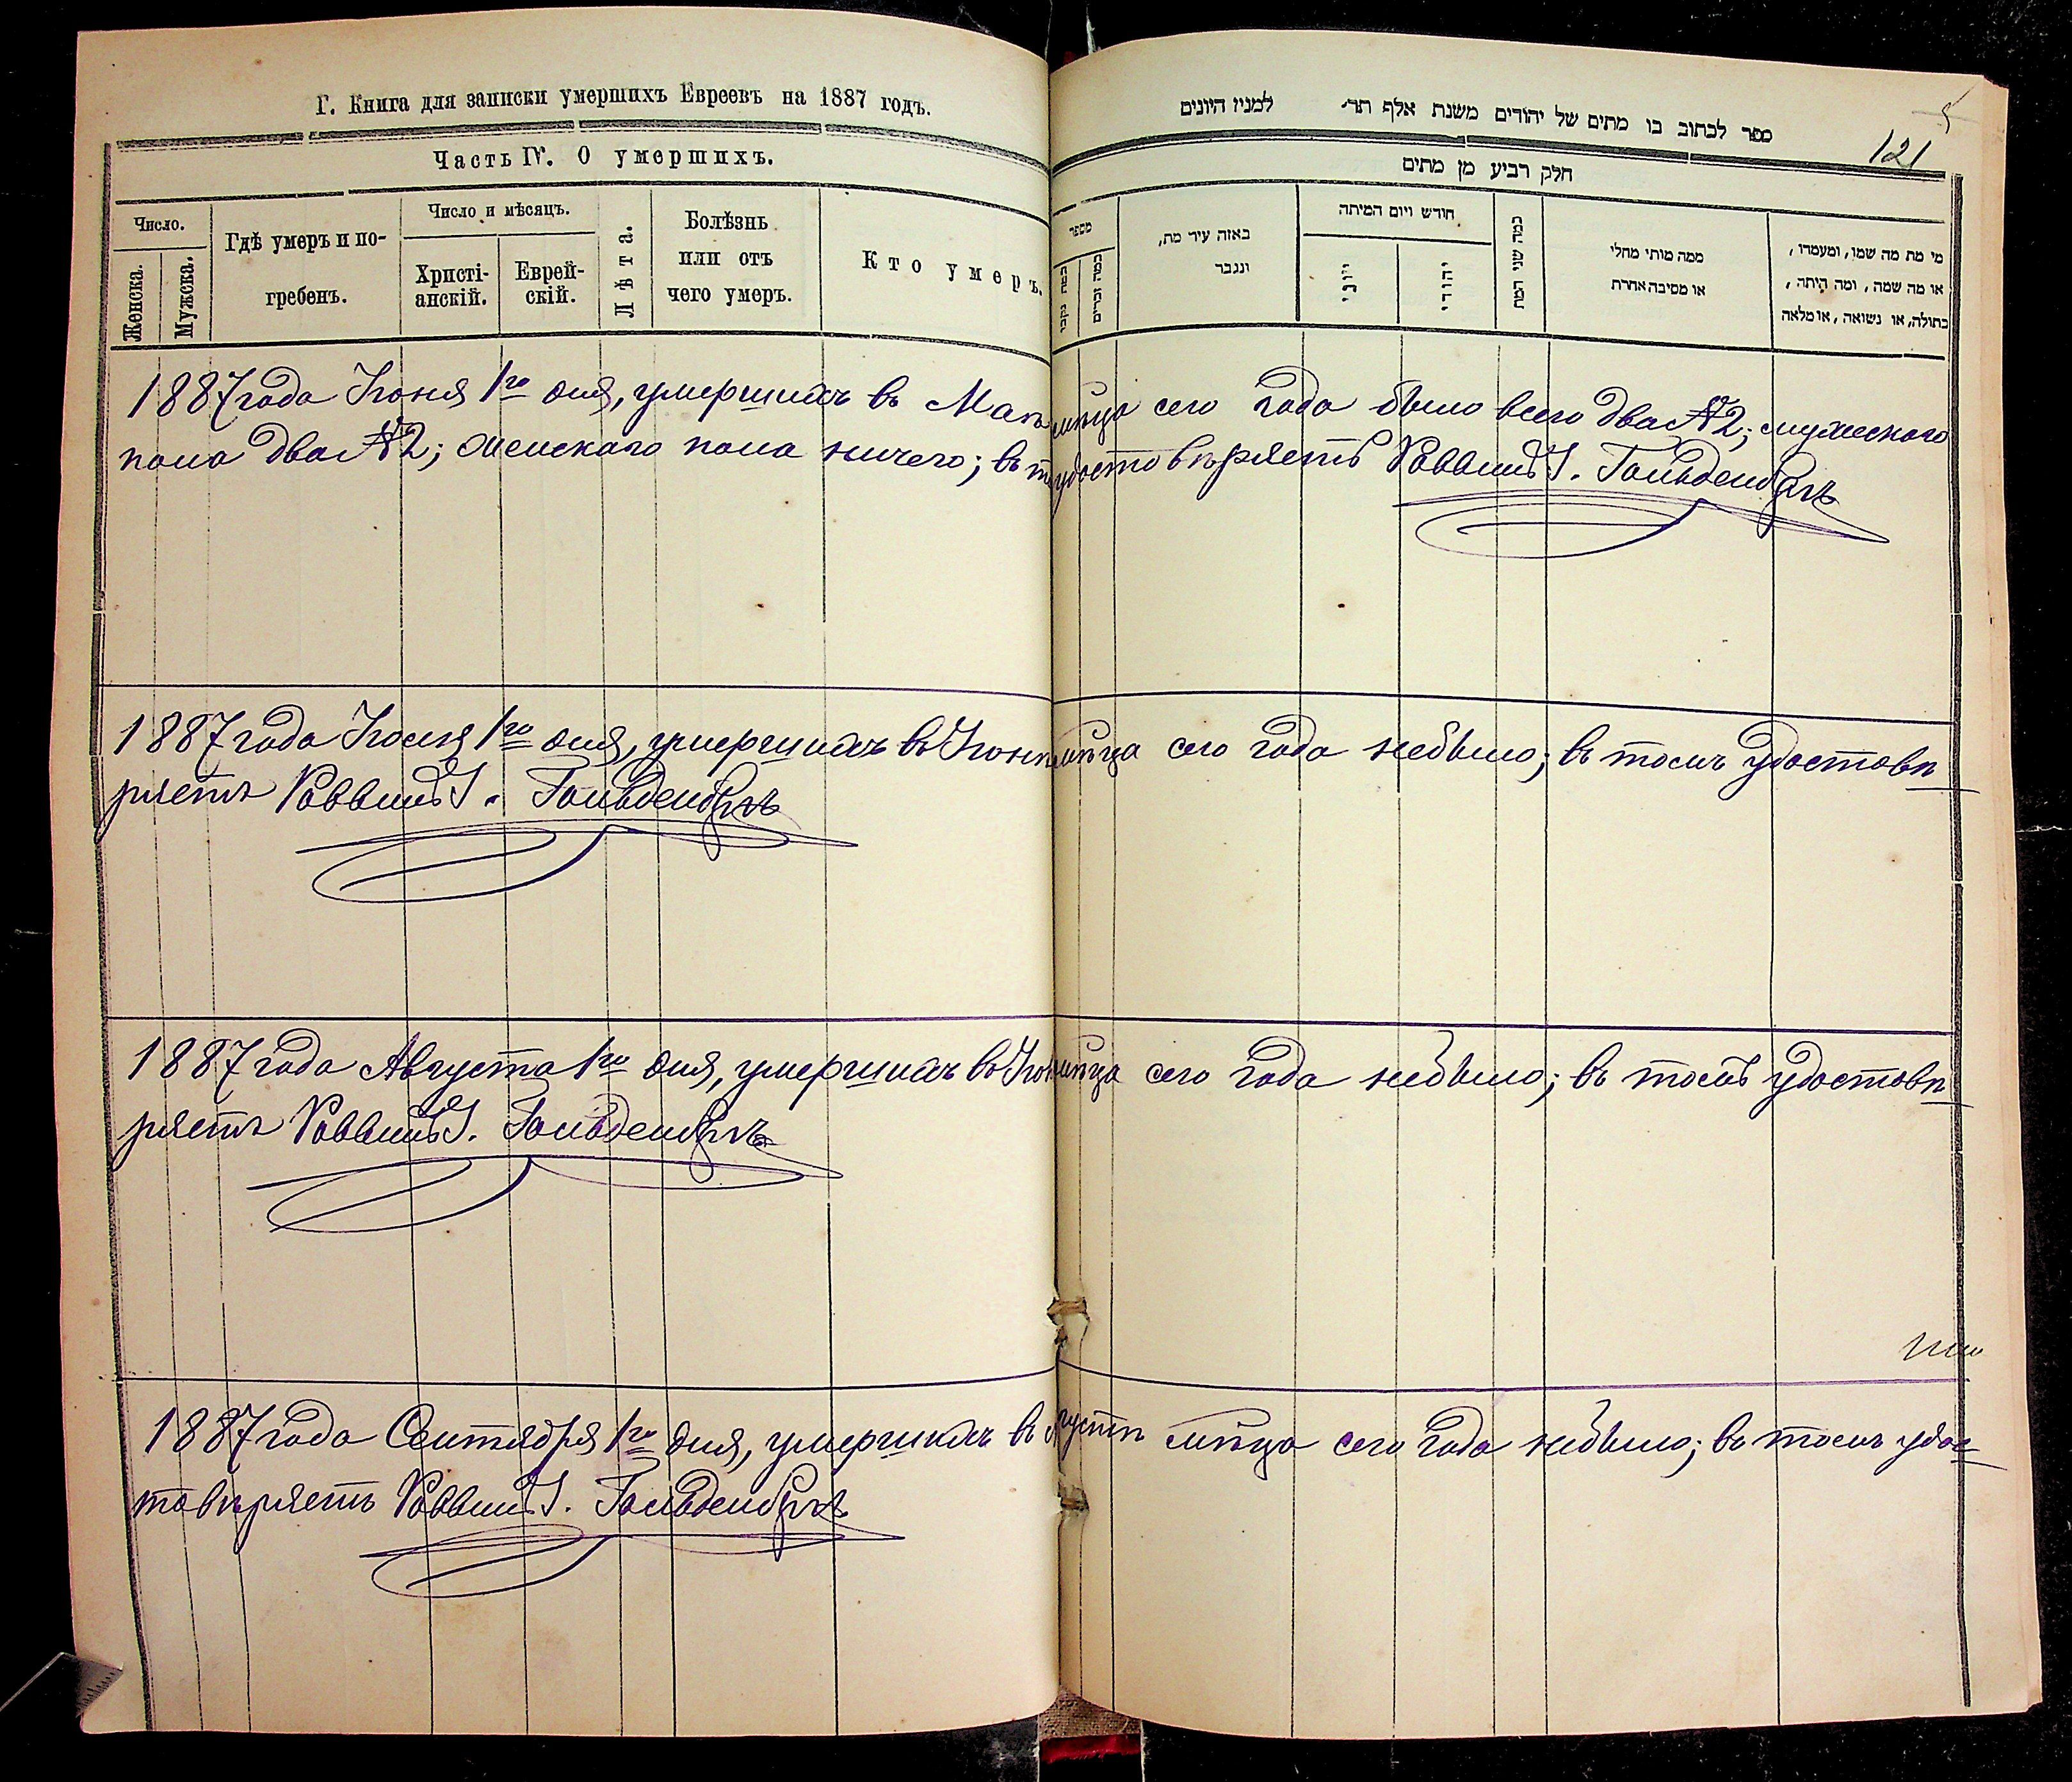 Г. Книга для записки умершихъ Евреевъ на 1887 годъ.
Часть IV. О умершихъ.
Число.
Женска.
Мужска.
Гдѣ умеръ и по-
гребенъ.
Число и мѣсяцъ.
Христі-
анскій.
Еврей-
скій.
Лѣта.
Болѣзнь
или отъ
чего умеръ.
Кто умеръ.
5
121
ספר לכתוב בו מתים של יהודים משנת אלף תר׳ למנין היונים
חלק רביע מן מתים
מספר
כמה נקבו
כמה זכרים
באזה עיר מת,
ונגבר
חודש ויום המיתה
יוני
יהודי
כמה שני המת
ממה מותי מחלי
או מסיבה אחרת
מי מת מה שמו, ומעמדו,
או מה שמה, ומה היתה,
בתולה, או נשואה, או מלאה
1887 года Іюня 1го дня, умершихъ въ Маѣ мѣца сего года было всего два №2; мужескаго
пола два №2; женскаго пола ничего; въ т удостовѣряетъ Раввинъ І. Гольденбргъ
1887 года Іюля 1го дня, умершихъ въ Іюнѣ мѣца сего года небыло; въ томъ удостовѣ
ряетъ Раввинъ І. Гольденбргъ
1887 года Августа 1го дня, умершихъ въ мѣца сего года небыло; въ томъ удостовѣ
ряетъ Раввинъ І. Гольденбргъ
1887 года Сентября 1го дня, умершихъ въ Августѣ мѣца сего года небыло; въ томъ удос
товѣряетъ Раввинъ І. Гольденбргъ